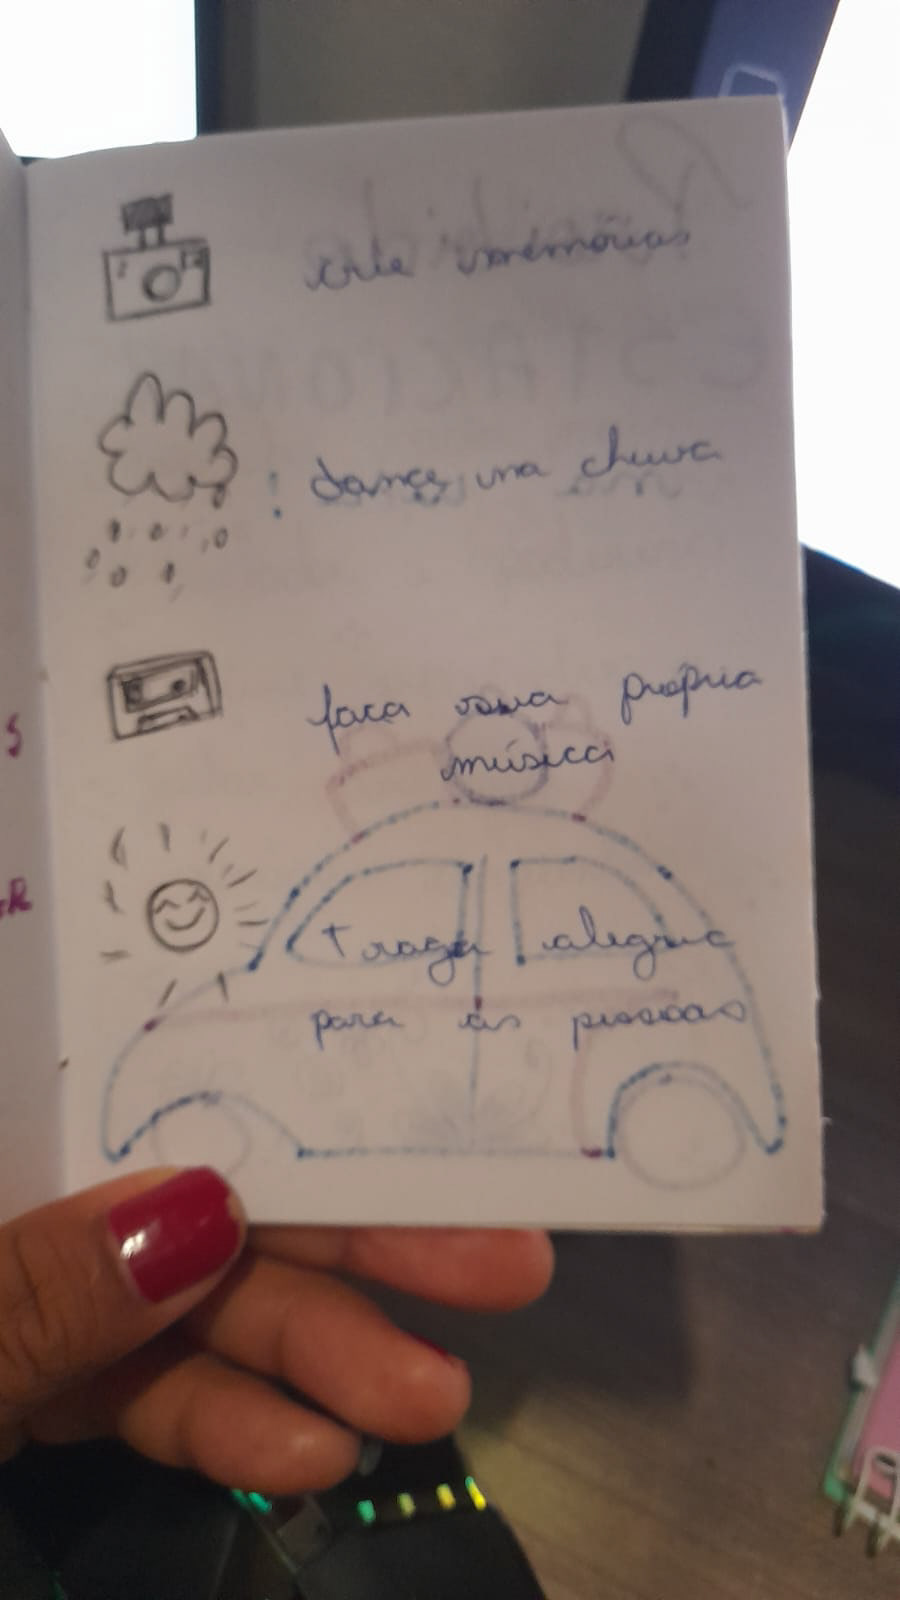 crie memórias
: dance na chuva
faça sua própria
música
Traga alegria
para as pessoas